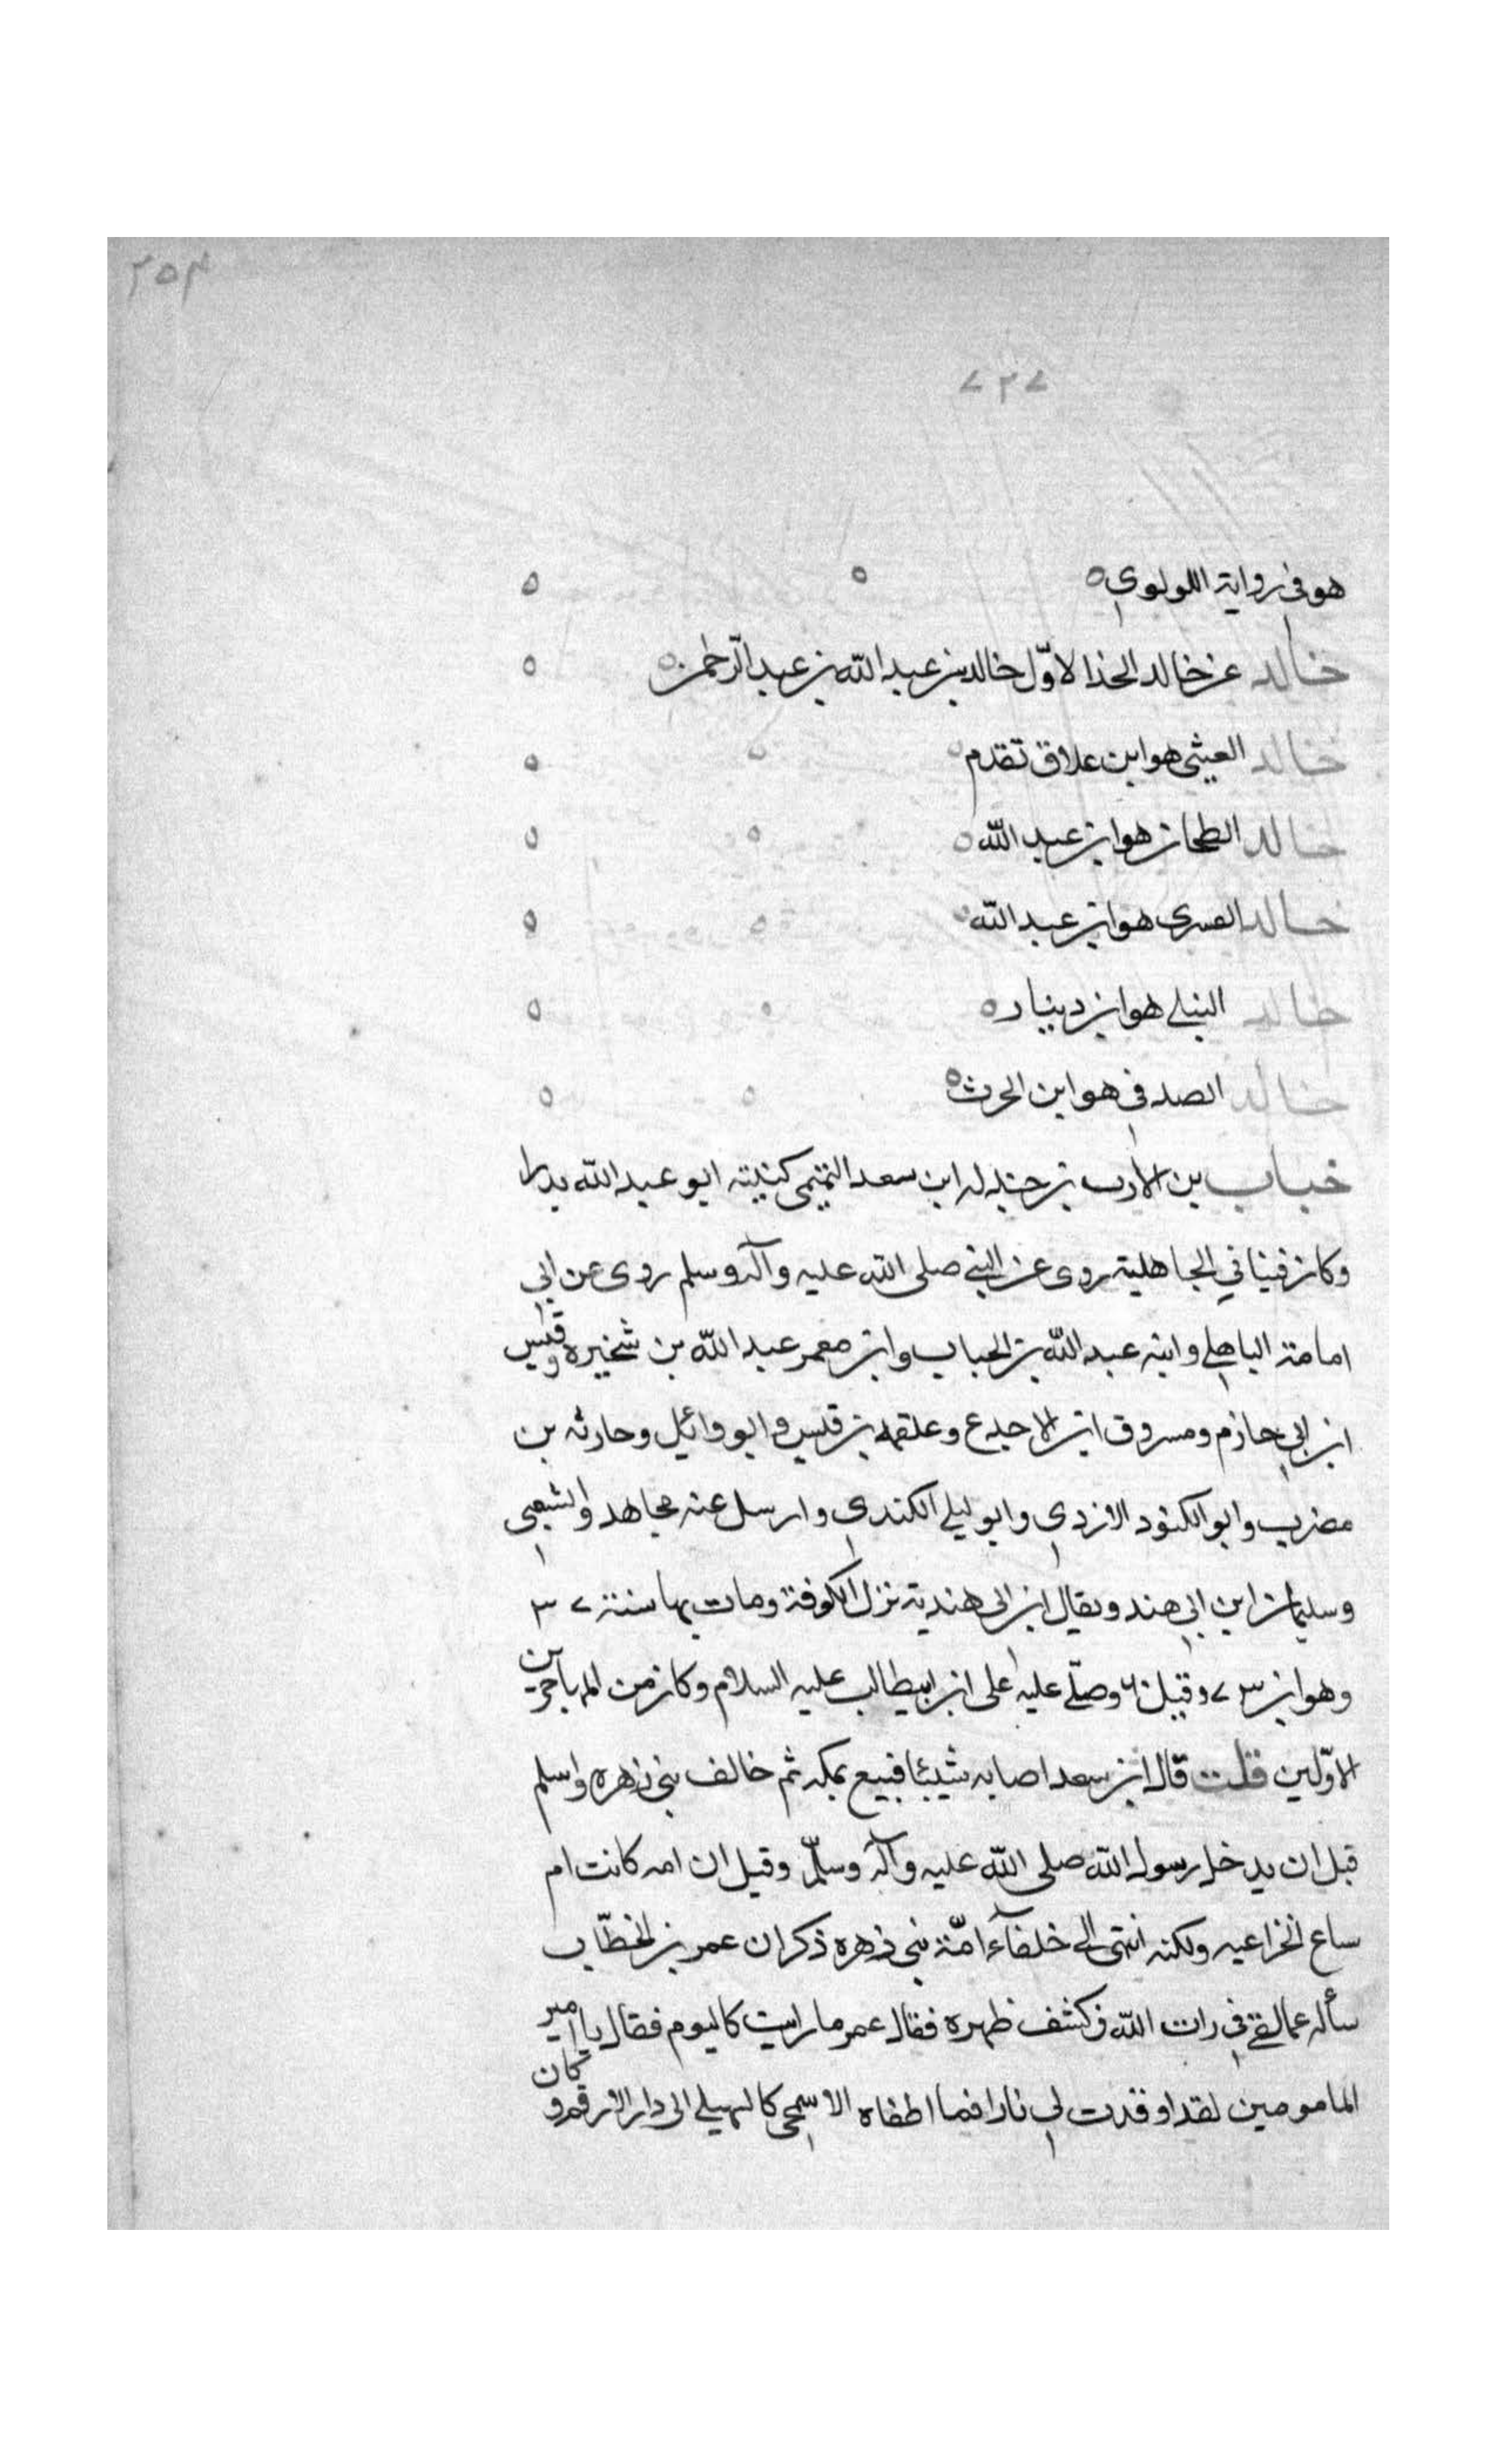 ٢٥٣
٧٢٧
هو في رواية اللولوي ه
خالد عن خالد الحذا الاوّل خالد بن عبد الله بن عبد الرّحمن ه
خالد العيثي هو ابن علاق تقدم ه
خالد الطحان هو ابن عبد الله ه
خالد القسري هو ابن عبد الله ه
خالد النيلي هو ابن دينار ه
خالد الصدفي هو ابن الحرث ه
خباب بن الارت بن جندله ابن سعد التميمي كنيته ابو عبد الله بدرا
وكان قينا في الجاهلية روى عن النبي صلى الله عليه وآله وسلم روى عن ابي
امامة الباهلي وابنه عبد الله بن الخباب وابن معمر عبد الله بن شخيره وقيس
ابن ابي حازم ومسروق ابن الاجدع وعلقمه بن قيس وابو وائل وحارثه بن
مضرب وابو الكنود الازدي وابو ليلى الكندي وارسل عنه مجاهد والشعبي
وسليمان ابن ابي هند ويقال ابن ابي هندية نزل الكوفة ومات بها سنة ٣٧
وهو ابن ٧٣ وقيل وصلّى عليه علي ابن ابيطالب عليه السلام وكان من المهاجرين
الاوّلين قلت قال ابن سعد اصابه شيئا فبيع بمكه ثم خالف بني زهره واسلم
قبل ان يدخل رسول الله صلى الله عليه وآله وسلّم وقيل ان امه كانت ام
ساع الخزاعيه ولكنه انتمى الى خلفآء امّة بني زهره ذكر ان عمر بن الخطّاب
سأله عما لقي في رات الله فكشف ظهره فقال عمر ما رايت كاليوم فقال يا امير
المامومين لقد اوقدت لي نارا فما اطفاه الا سمحى كالهيلي الى دار الارقم وكان